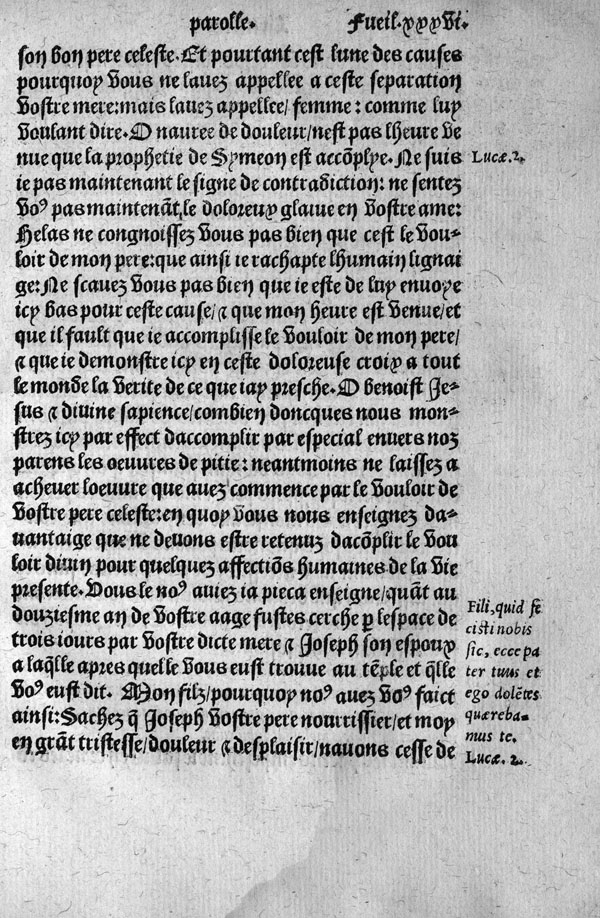 parolle. Fueil.xxxvi.
son bon pere celeste. Et pourtant cest lune des causes
pourquoy vous ne lauez appellee a ceste separation
vostre mere: mais lauez appellee/ femme: comme luy
voulant dire. O nauree de douleur/ nest pas lheure ve
nue que la prophetie de Symeon est accōplye. Ne suis
ie pas maintenant le signe de contradiction: ne sentez
voꝰ pas maintenāt, le doloreux glaiue en vostre ame:
Helas ne congnoissez vous pas bien que cest le vou-
loir de mon pere: que ainsi ie rachapte lhumain lignai
ge: Ne scauez vous pas bien que ie este de luy enuoye
icy bas pour ceste cause/ ⁊ que mon heure est venue/ et
que il fault que ie accomplisse le vouloir de mon pere/
⁊ que ie demonstre icy en ceste doloreuse croix a tout
le monde la verite de ce que iay presche. O benoist Je-
sus ⁊ diuine sapience/ combien doncques nous mon-
strez icy par effect daccomplir par especial enuers noz
parens les oeuures de pitie: neantmoins ne laissez a
acheuer loeuure que auez commence par le vouloir de
vostre pere celeste: en quoy vous nous enseignez da-
uantaige que ne deuons estre retenuz dacōplir le vou
loir diuin pour quelquez affectiōs humaines de la vie
presente. Vous le noꝰ auiez ia pieca enseigne/ quāt au
douziesme an de vostre aage fustes cerche p̱ lespace de
trois iours par vostre dicte mere ⁊ Joseph son espoux
a laq̄lle apres quelle vous eust trouue au tēple et q̄lle
voꝰ eust dit. Mon filz/ pourquoy noꝰ auez voꝰ faict
ainsi: Sachez q̄ Joseph vostre pere nourrissier/ et moy
en grāt tristesse/ douleur ⁊ desplaisir/ nauons cesse de
Lucæ. 2.
Fili, quid fe
cisti nobis
sic, ecce pa
ter tuus et
ego dolētes
quæreba-
mus te.
Lucæ. 2.